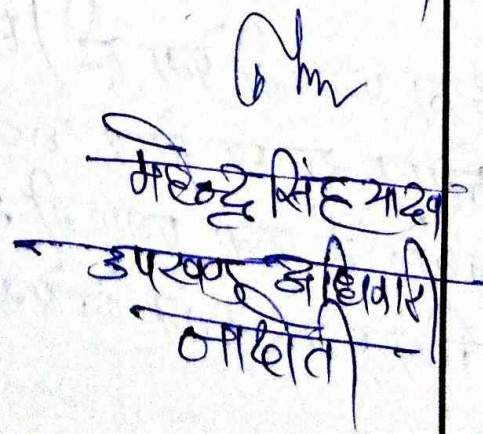 महेन्द्र सिंह यादव
उपखण्ड अधिकारी
नादोती